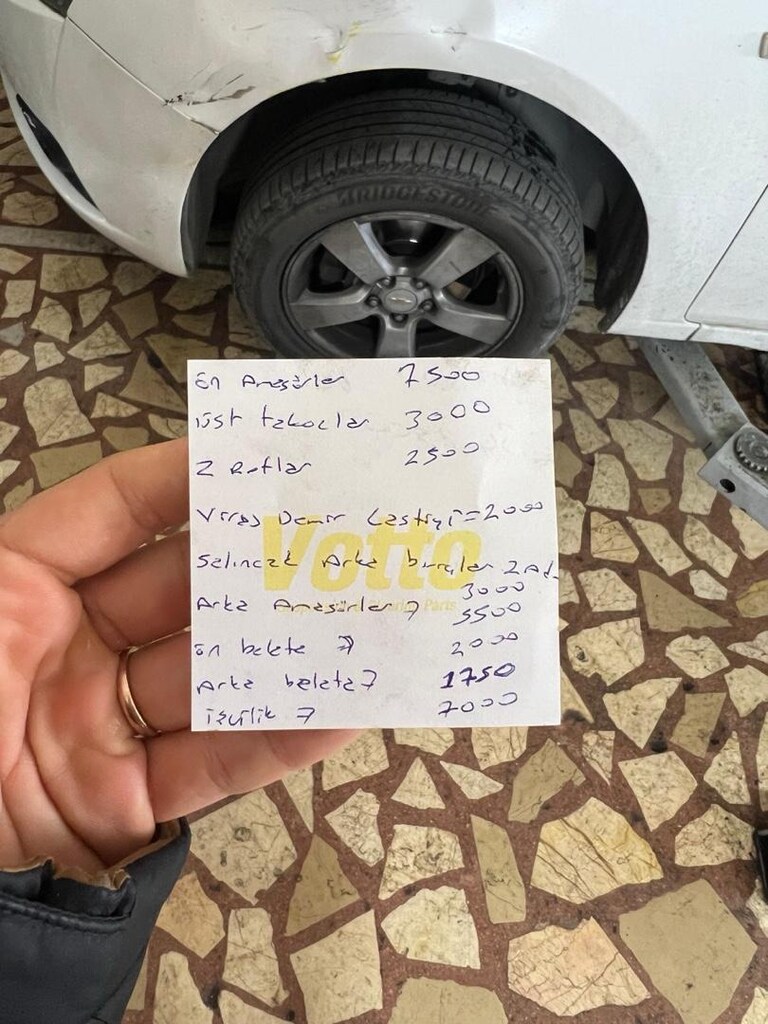 BRIDGESTONE
ön Amaşörler 7500
üst takozlar 3000
Z Rotlar 2500
Viraj Demir Lastiği = 2000
Votto
Salıncak Arka burçlar 2 Ad.
3000
Arka Amaşörler 7 5500
Parts
ön balata 7 2000
Arka balata 7 1750
işçilik 7 7000